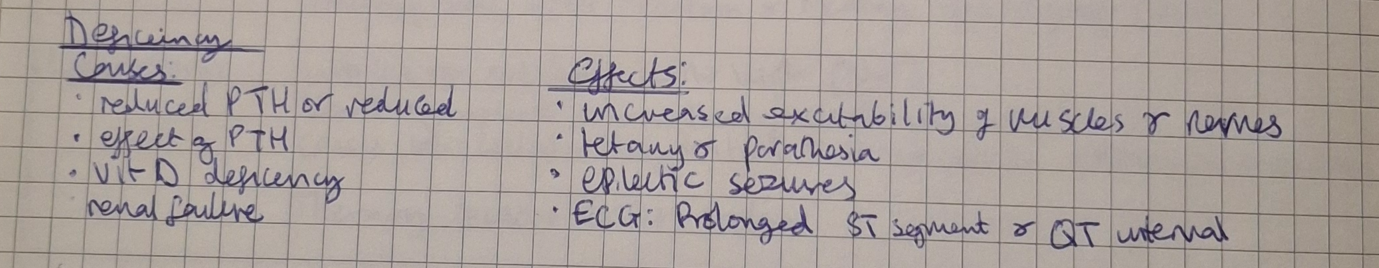 Deficiency
Causes:
· reduced PTH or reduced
· effect of PTH
· Vit D deficency
renal failure
Effects:
· increased excitability of muscles & nerves
· tetany & parathesia
· epilectic seizures
· ECG: Prolonged ST segment & QT interval